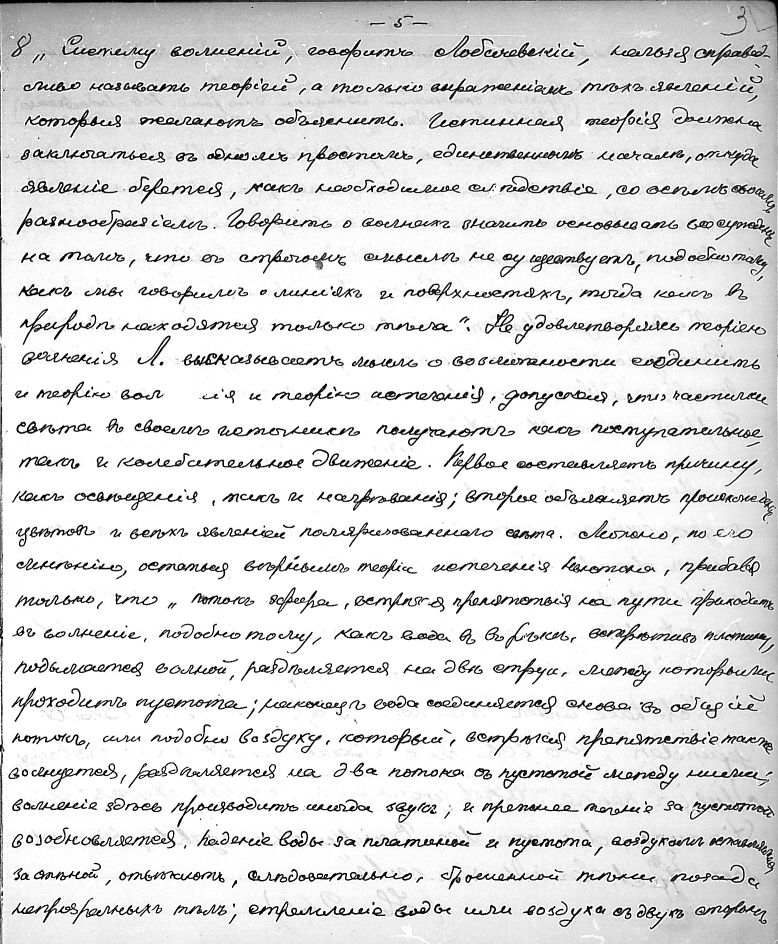 — 5 —
8 „ Систему волненій, говоритъ Лобачевскій, нельзя справед-
ливо называть теоріей, а только выраженіемъ тѣхъ явленій,
которыя желаютъ объяснить. Истинная теорія должна
заключаться въ одномъ простомъ, единственномъ началѣ, откуда
явленіе берется, какъ необходимое слѣдствіе, со всѣмъ своимъ
разнообразіемъ. Говорить о волнахъ значитъ основывать все сужденіе
на томъ, что въ строгомъ смыслѣ не существуетъ, подобно тому,
какъ мы говоримъ о линіяхъ и поверхностяхъ, тогда какъ въ
природѣ находятся только тѣла“. Не удовлетворяясь теоріею
волненія Л. высказываетъ мысль о возможности соединить
и теорію вол нія и теорію истеченія, допуская, что частички
свѣта въ своемъ источникѣ получаютъ какъ поступательное,
такъ и колебательное движеніе. Первое составляетъ причину,
какъ освѣщенія, такъ и нагрѣванія; второе объясняетъ происхожденіе
цвѣтовъ и всѣхъ явленій поляризованнаго свѣта. Можно, по его
мнѣнію, остаться вѣрнымъ теоріи истеченія Ньютона, прибавя
только, что „ потокъ эфира, встрѣчая препятствія на пути приходитъ
въ волненіе, подобно тому, какъ вода въ рѣкѣ, встрѣтивъ плотину,
подымается волной, раздѣляется на двѣ струи, между которыми
проходитъ пустота; наконецъ вода соединяется снова въ общій
потокъ, или подобно воздуху, который, встрѣчая препятствіе также
волнуется, раздѣляется на два потока съ пустотой между ними;
волненіе здѣсь производитъ иногда звукъ; и прежнее теченіе за пустотой
возобновляется. Паденіе воды за плотиной и пустота, воздухомъ
за стѣной, отвѣчаютъ, слѣдовательно, брошенной тѣни позади
непрозрачныхъ тѣлъ; стремленіе воды или воздуха съ двухъ сторонъ